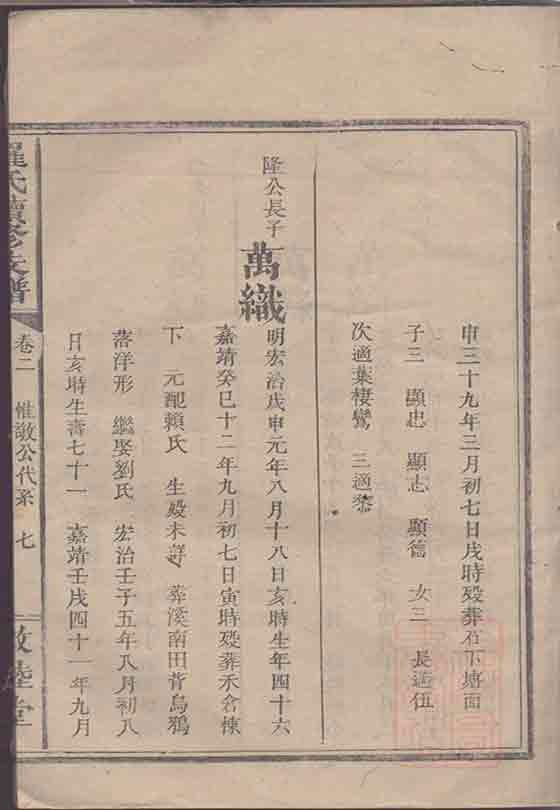 申三十九年三月初七日戌時殁葬石下塘面
子三　顯忠　顯志　顯德　女三　長適伍
次適葉棲鸞　三適黎
隆公長子
萬織
明宏治戊申元年八月十八日亥時生年四十六
嘉靖癸巳十二年九月初七日寅時殁葬禾倉棟
下　元配賴氏　生殁未詳　葬溪南田背烏鴉
落洋形　繼娶劉氏　宏治壬子五年八月初八
日亥時生壽七十一　嘉靖壬戌四十一年九月
羅氏續修支譜
卷二　惟敬公代系　七
敦睦堂